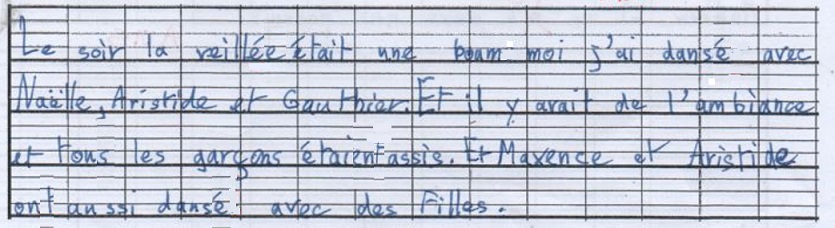 Le soir la veillée était une boam moi j'ai dansé avec
Naëlle, Aristide et Gauthier. Et il y avait de l'ambiance
et tous les garçons étaient assis. Et Maxence et Aristide
ont aussi dansé avec des filles.